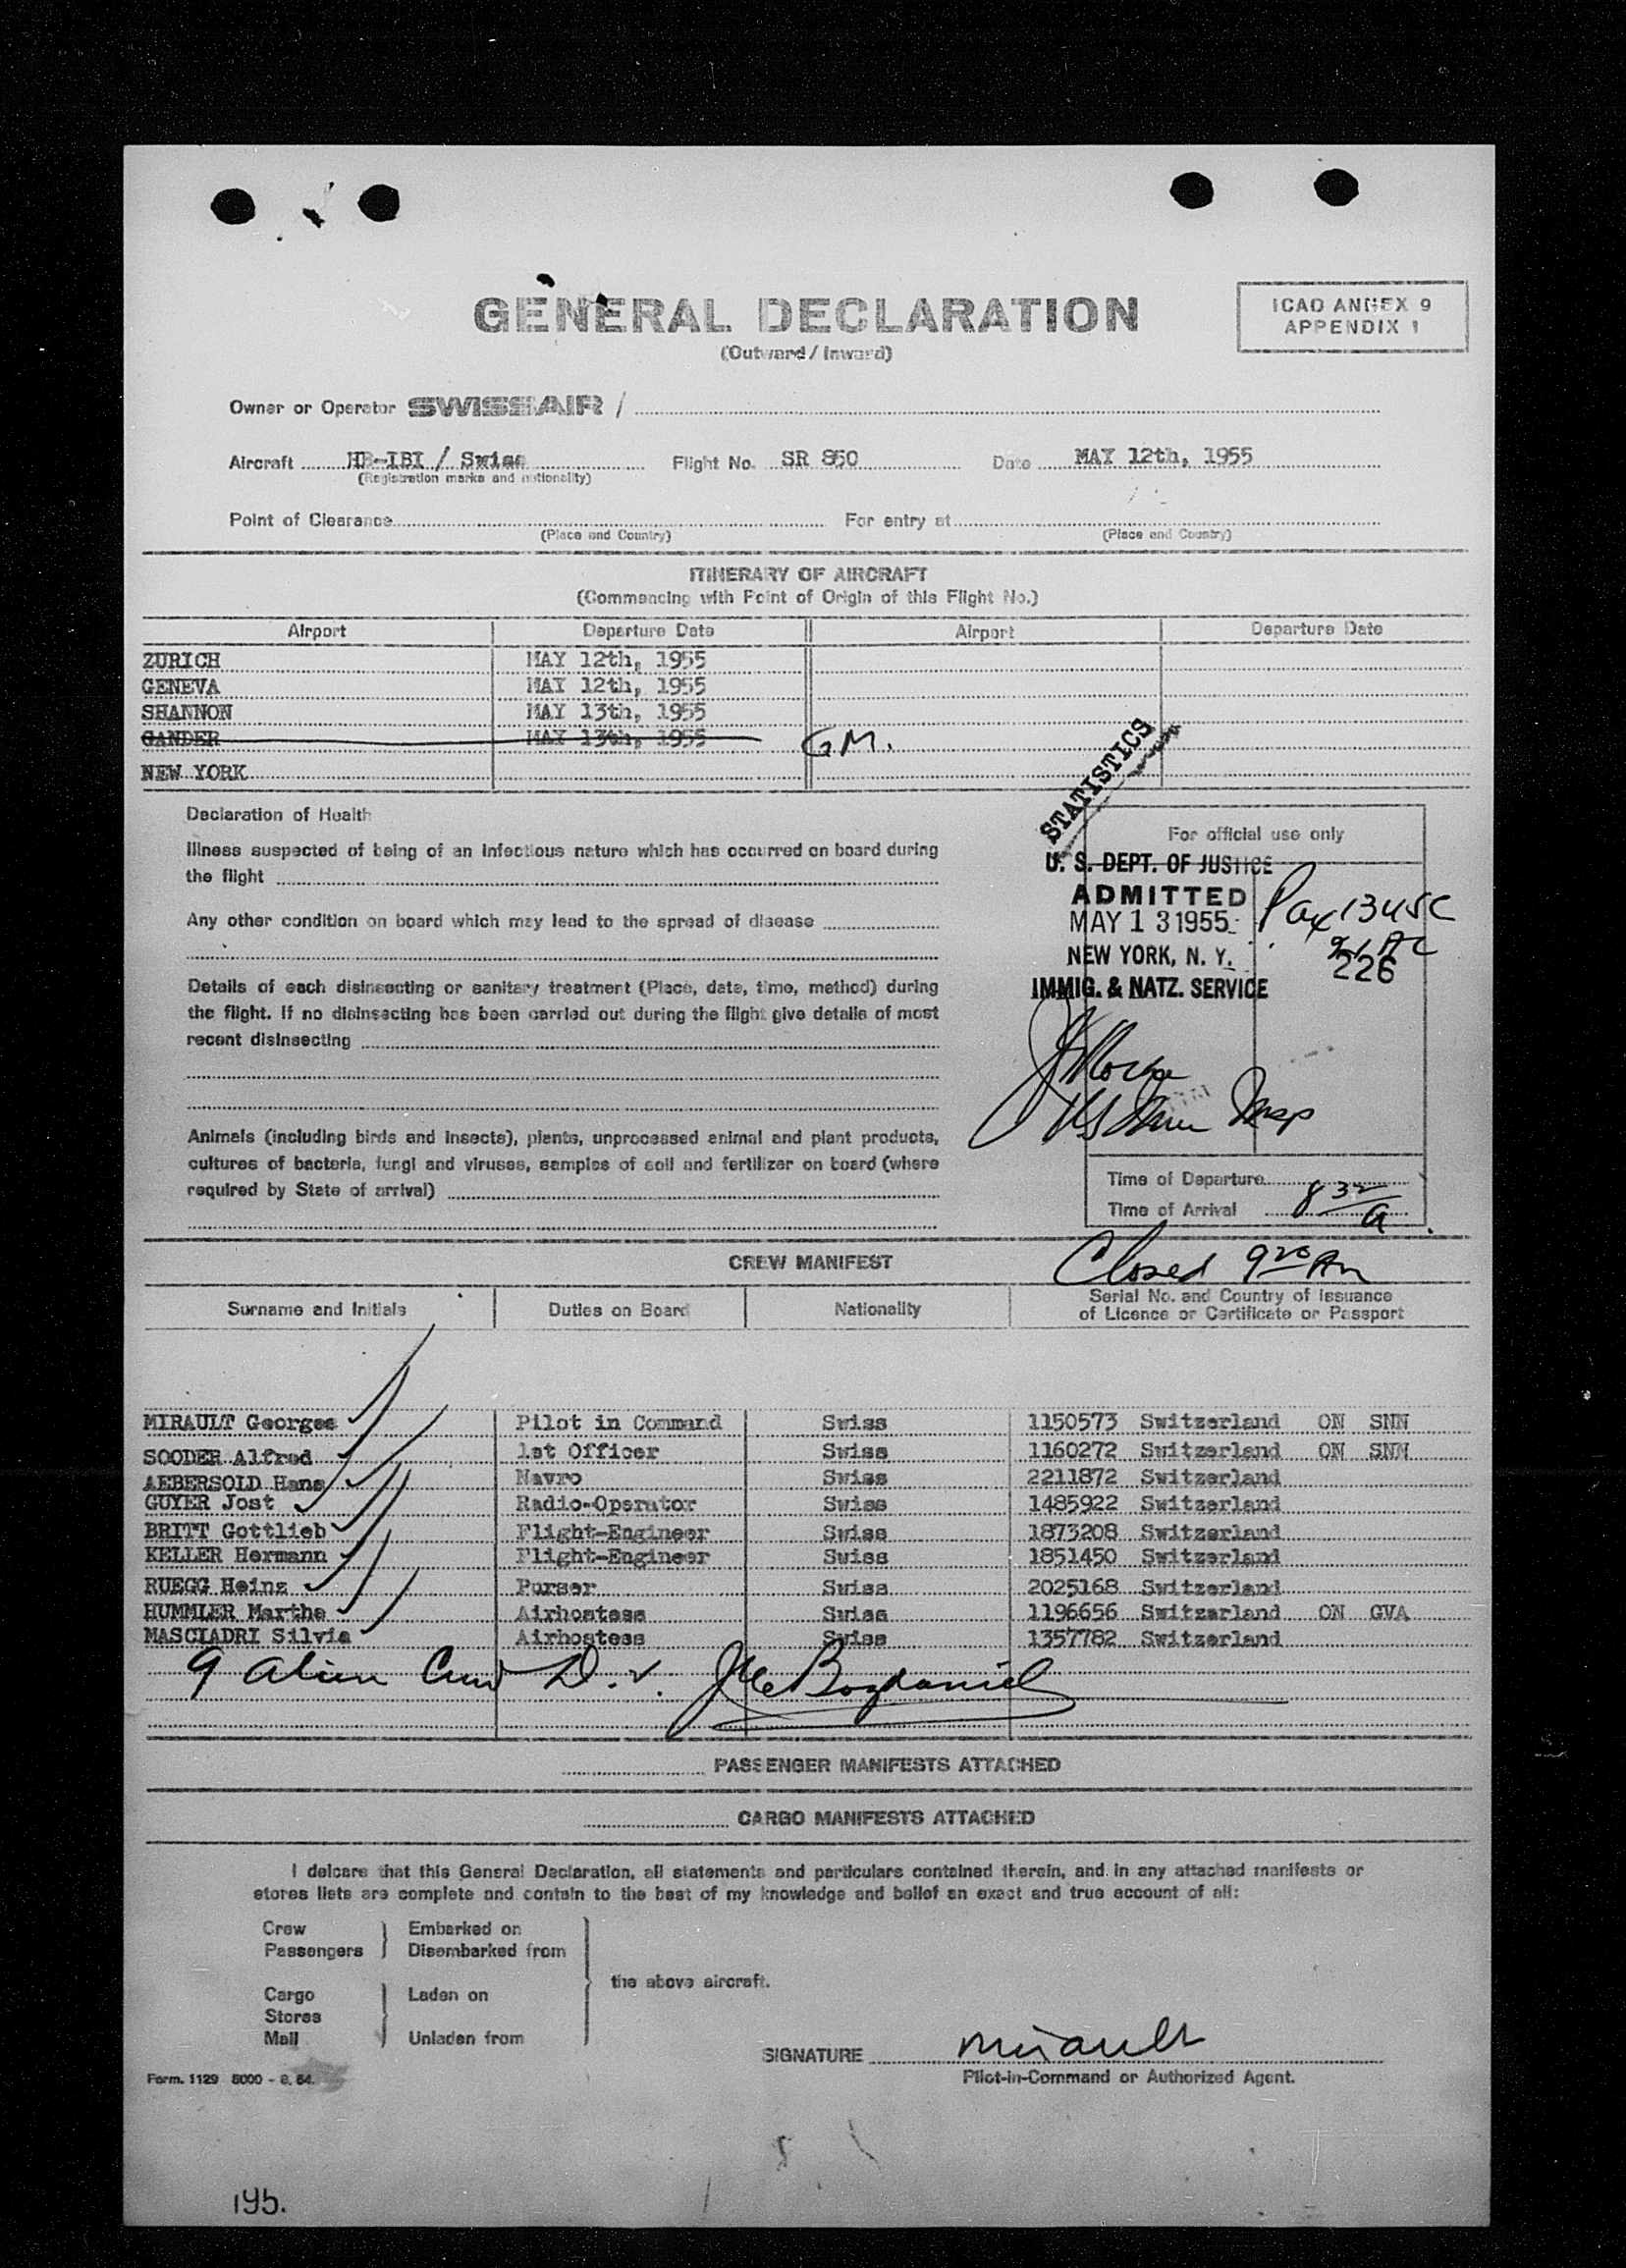 GENERAL DECLARATION
(Outward / Inward)
ICAO ANNEX 9
APPENDIX 1
Owner or Operator SWISSAIR /
Aircraft HB-IBI / Swiss Flight No. SR 850 Date MAY 12th, 1955
(Registration marks and nationality)
Point of Clearance For entry at
(Place and Country) (Place and Country)
ITINERARY OF AIRCRAFT
(Commencing with Point of Origin of this Flight No.)
Airport Departure Date Airport Departure Date
ZURICH MAY 12th, 1955
GENEVA MAY 12th, 1955
SHANNON MAY 13th, 1955
GANDER MAY 13th, 1955 GM.
NEW YORK
STATISTICS
Declaration of Health
Illness suspected of being of an infectious nature which has occurred on board during
the flight
Any other condition on board which may lead to the spread of disease
Details of each disinsecting or sanitary treatment (Place, date, time, method) during
the flight. If no disinsecting has been carried out during the flight give details of most
recent disinsecting
Animals (including birds and insects), plants, unprocessed animal and plant products,
cultures of bacteria, fungi and viruses, samples of soil and fertilizer on board (where
required by State of arrival)
For official use only
U. S. DEPT. OF JUSTICE
ADMITTED
MAY 13 1955
NEW YORK, N. Y.
IMMIG. & NATZ. SERVICE
Pax 13 USC
226
Time of Departure
Time of Arrival 8 32 A
Closed 9 20 Am
CREW MANIFEST
Surname and Initials Duties on Board Nationality Serial No. and Country of Issuance
of Licence or Certificate or Passport
MIRAULT Georges Pilot in Command Swiss 1150573 Switzerland ON SNN
SOODER Alfred 1st Officer Swiss 1160272 Switzerland ON SNN
AEBERSOLD Hans Navro Swiss 2211872 Switzerland
GUYER Jost Radio-Operator Swiss 1485922 Switzerland
BRITT Gottlieb Flight-Engineer Swiss 1873208 Switzerland
KELLER Hermann Flight-Engineer Swiss 1851450 Switzerland
RUEGG Heinz Purser Swiss 2025168 Switzerland
HUMMLER Marthe Airhostess Swiss 1196656 Switzerland ON GVA
MASCIADRI Silvia Airhostess Swiss 1357782 Switzerland
9 Alien Crew D. V.
PASSENGER MANIFESTS ATTACHED
CARGO MANIFESTS ATTACHED
I delcare that this General Declaration, all statements and particulars contained therein, and in any attached manifests or
stores lists are complete and contain to the best of my knowledge and belief an exact and true account of all:
Crew Embarked on
Passengers Disembarked from
the above aircraft.
Cargo Laden on
Stores
Mail Unladen from
SIGNATURE Mirault
Pilot-in-Command or Authorized Agent.
Form. 1129 5000 - 8. 54.
195.